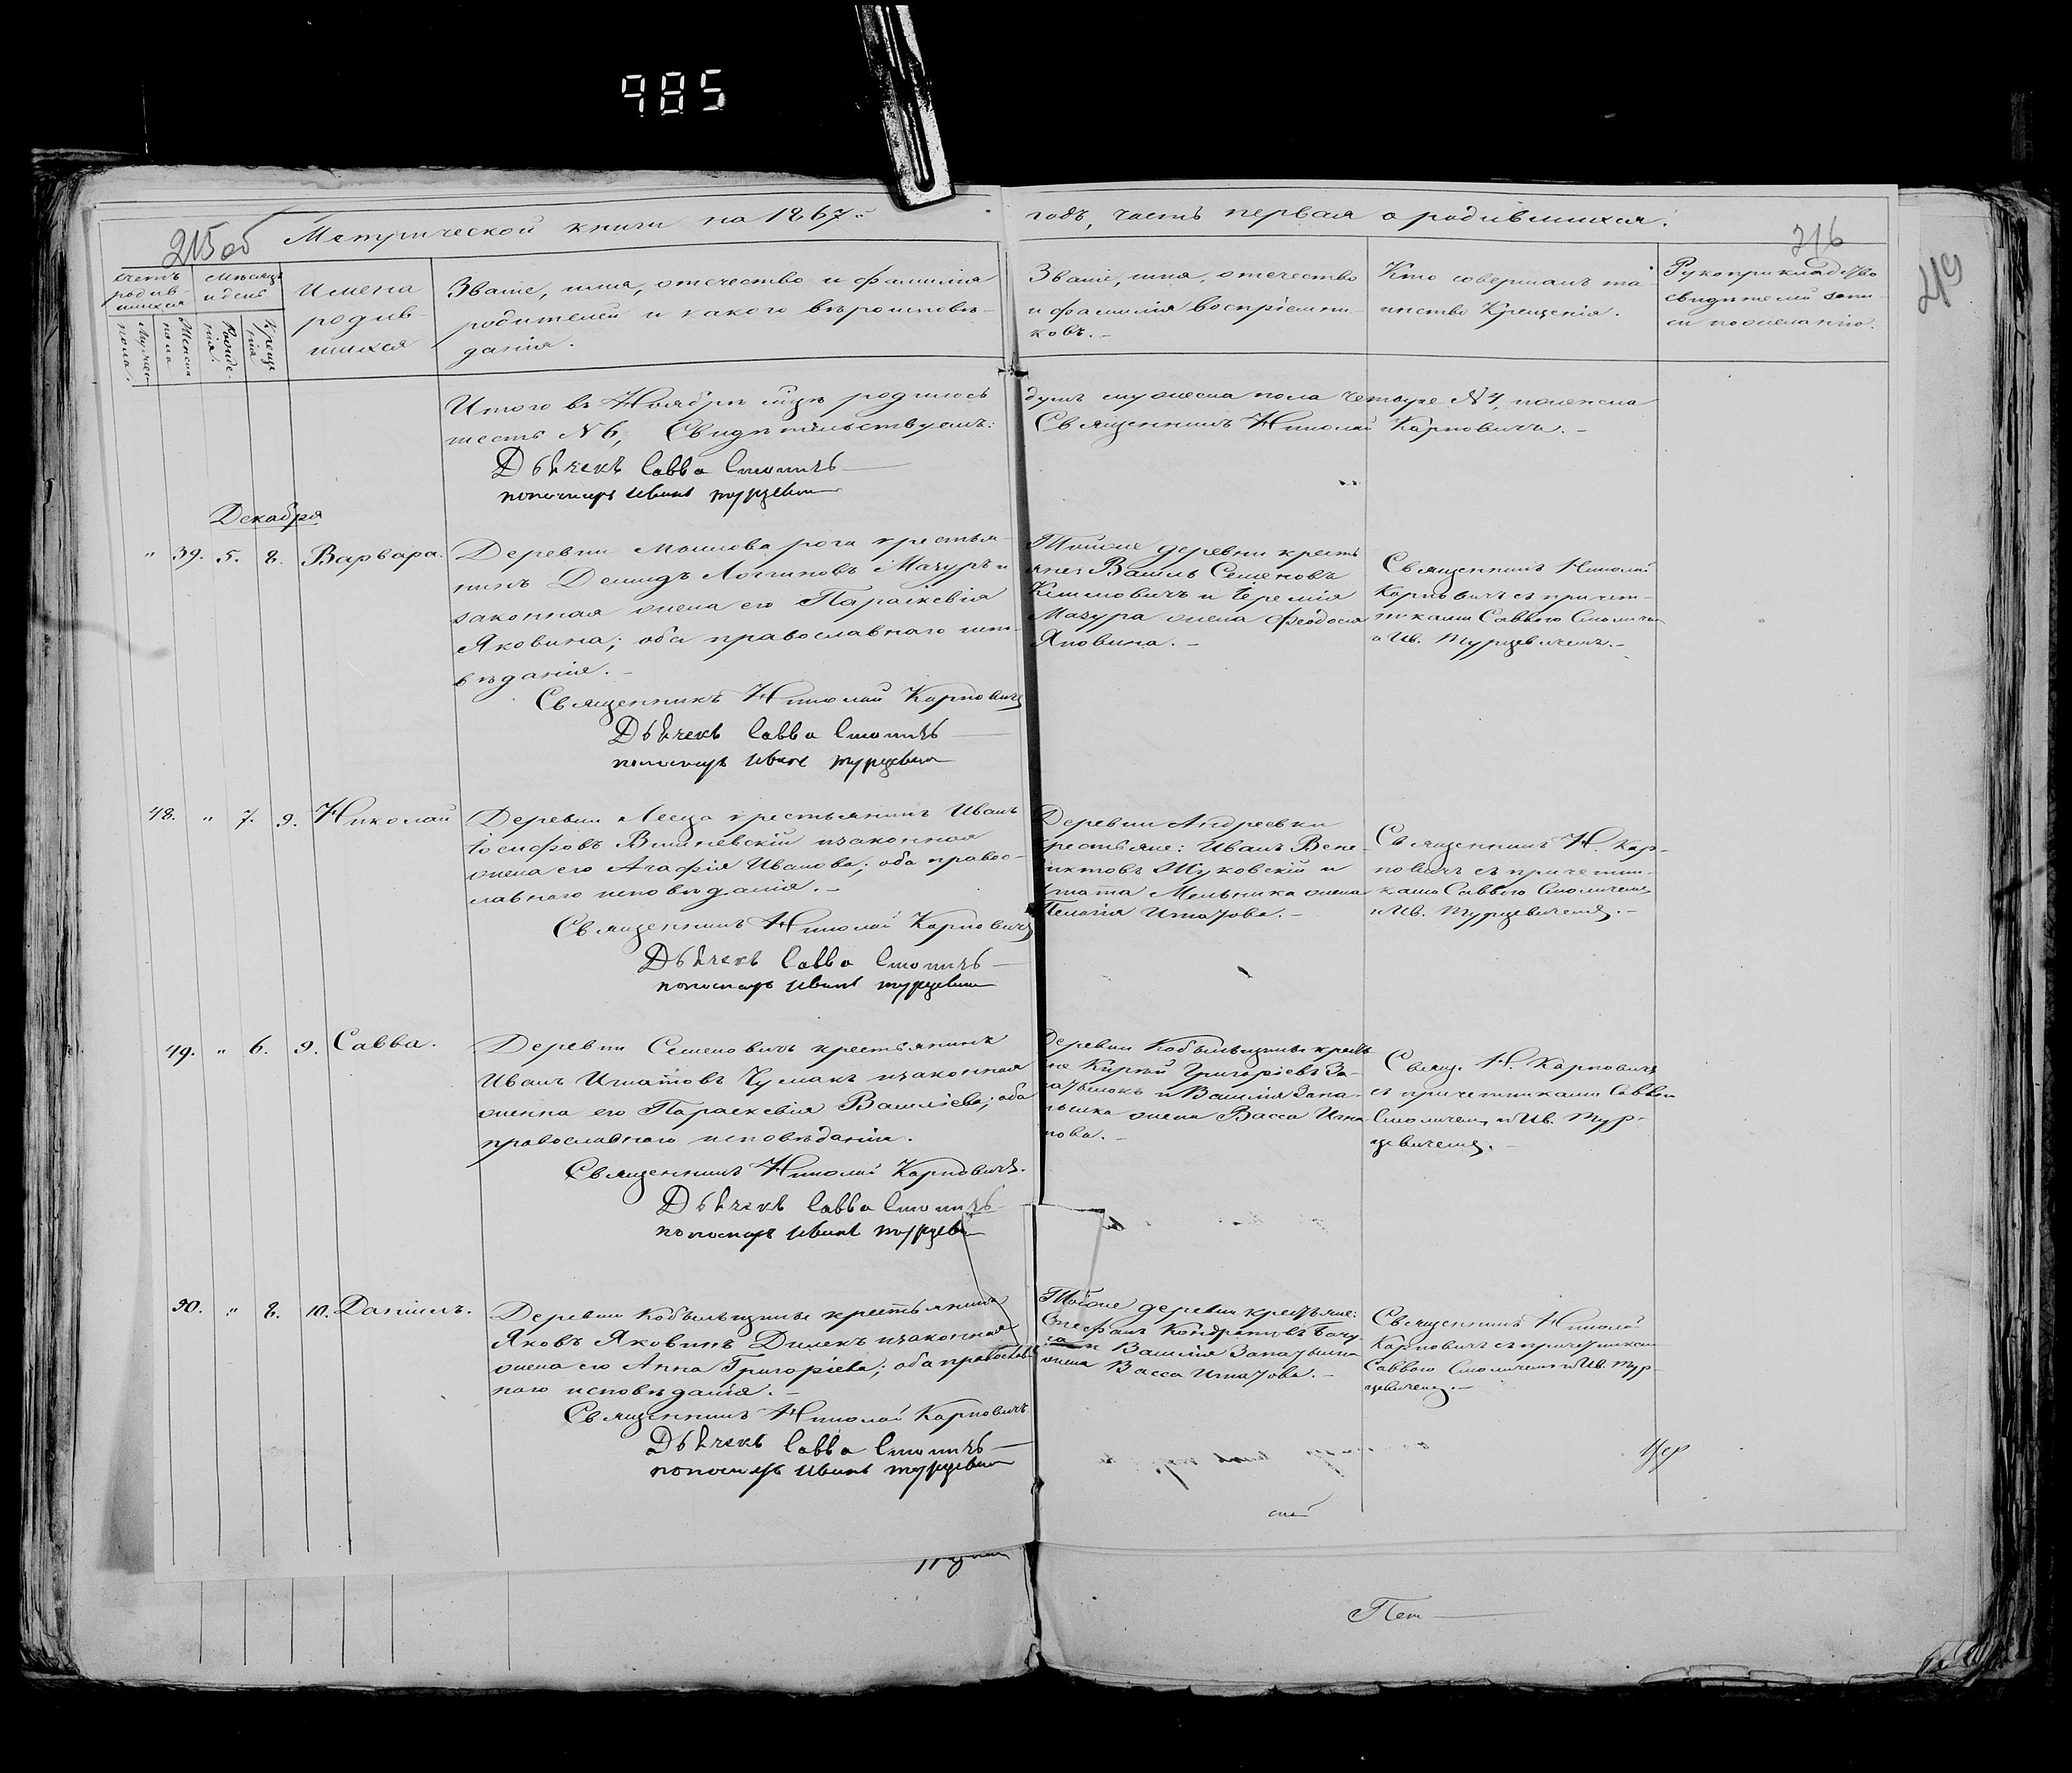 985
215об Метрической книги на 1867.
годъ, часть первая о родившихся.
216
49
счетъ родив-шихся
Мѣсяцъ и день
Мужеск пола.
Женска пола
Рожде-нія.
Креще нія
Имена
родив-
шихся
Званіе, имя, отечество и фамилія
родителей и какого вѣроисповѣ-
данія.
Званіе, имя, отечество
и фамилія воспріемни-
ковъ.-
Кто совершалъ та-
инство Крещенія.
Рукоприкладство
свидѣтелей запи-
си по желанію.
Итого въ Ноябрѣ мцѣ родилось
шесть №6, Свидѣтельствуемъ:
душъ мужеска пола четыре №4, женска
Священникъ Николай Карповичъ.-
Дьячекъ Савва Смоличъ
пономарь Иванъ Турцевич
Декабря
" 39. 5. 8. Варвара.
Деревни рога крестья-
нинъ Демидъ Логиновъ Мачуръ и
законная жена его Параскевія
Яковина; оба православнаго испо-
вѣданія.-
Священникъ Николай Карповичъ
Дьячекъ Савва Смоличъ
пономарь Иванъ Турцевич
Тойже деревни кресть
яне: Василь Семеновъ
Климовичъ и Іеремія
Мачура жена Феодосія
Яковина.-
Священникъ Николай
Карповичъ съ причет-
никами Саввою Смоличем
и Ив. Турцевичемъ.-
48. " 7. 9. Николай
Деревни крестьянинъ Иванъ
Іосифовъ и законная
жена его Агафія Иванова; оба правос-
лавнаго исповѣданія.-
Священникъ Николай Карповичъ
Дьячекъ Савва Смоличъ
пономарь Иванъ Турцевич
Деревни Андреевки
крестьяне: Иванъ Вене-
диктовъ Жуковскій и
Игната Мельника жена
Пелагія Игнатова.-
Священникъ Н. Кар-
повичъ съ причетни-
ками Саввою Смоличемъ
и Ив. Турцевичемъ.-
49. " 6. 9. Савва.
Деревни Семеновичъ крестьянинъ
Иванъ Игнатовъ Чумакъ и законная
женна его Параскевія Васильева; оба
православнаго исповѣданія.
Священникъ Николай Карповичъ.
Дьячекъ Савва Смоличъ
пономарь Иванъ Турцеви
Деревни Кобыльщины кресть
яне Григорьевъ За-
и Василія Запа-
жена Васса Игна
това.-
Свящ. Н. Карповичъ
съ причетниками Саввою
Смоличемъ и Ив. Тур-
цевичемъ.-
50. " 8. 10. Даніилъ.
Деревни Кобыльщины крестьянинъ
Яковъ Яковинъ и законная
жена его Анна Григорьева; оба православ-
наго исповѣданія.-
Священникъ Николай Карповичъ
Дьячекъ Савва Смоличъ
пономарь Иванъ Турцевич
Тойже деревни крестьяне:
Стефанъ Кондратовъ
и Василія
жена Васса Игнатова.-
Священникъ Николай
Карповичъ съ причетникам
Саввою Смоличемъ и Ив. Тур-
цевичемъ.-